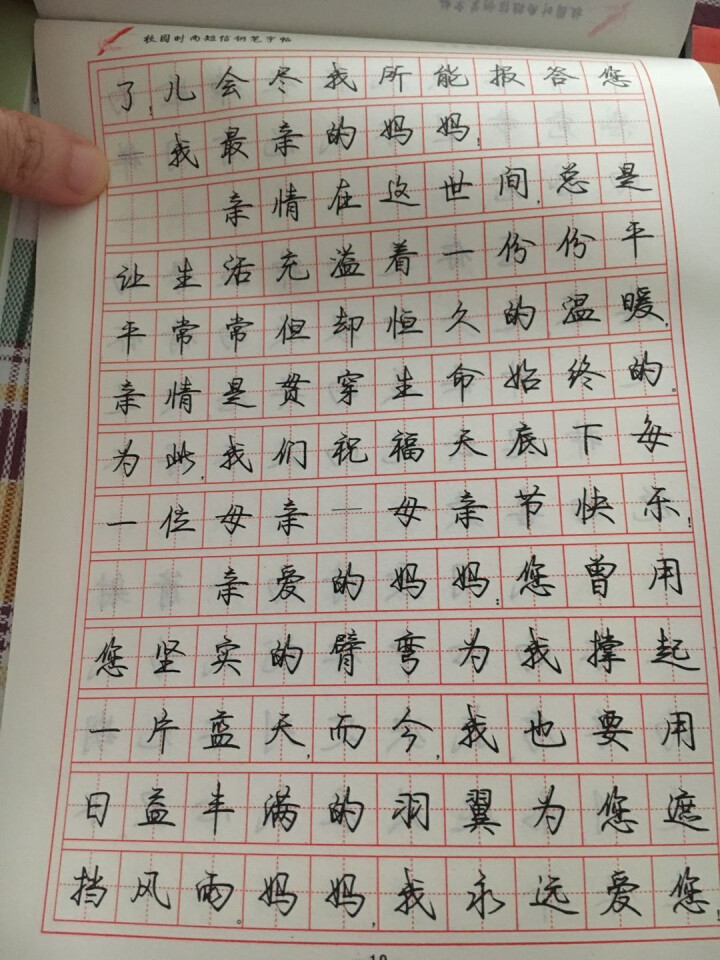 校园时尚短信钢笔字帖
了,儿会尽我所能报答您
—我最亲的妈妈!
亲情在这世间,总是
让生活充溢着一份份平
平常常但却恒久的温暖,
亲情是贯穿生命始终的。
为此,我们祝福天底下每
一位母亲—母亲节快乐!
亲爱的妈妈:您曾用
您坚实的臂弯为我撑起
一片蓝天,而今,我也要用
日益丰满的羽翼为您遮
挡风雨。妈妈,我永远爱您!